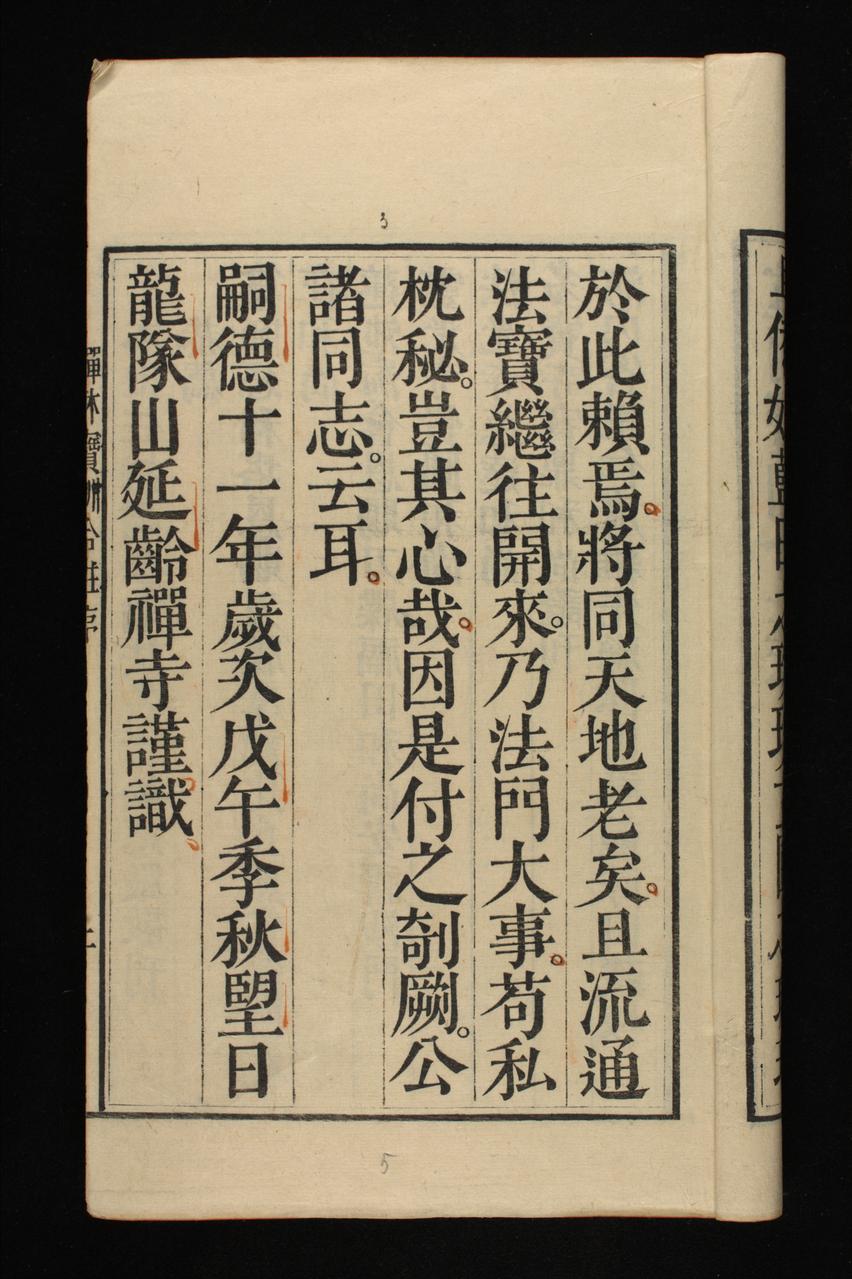 3
於此賴焉。將同天地老矣。且流通
法寶繼往開來。乃法門大事。苟私
枕秘。豈其心哉。因是付之剞劂。公
諸同志。云耳。
嗣德十一年歲次戊午季秋望日
龍隊山延齡禪寺謹識
禪林寶訓合註序
5